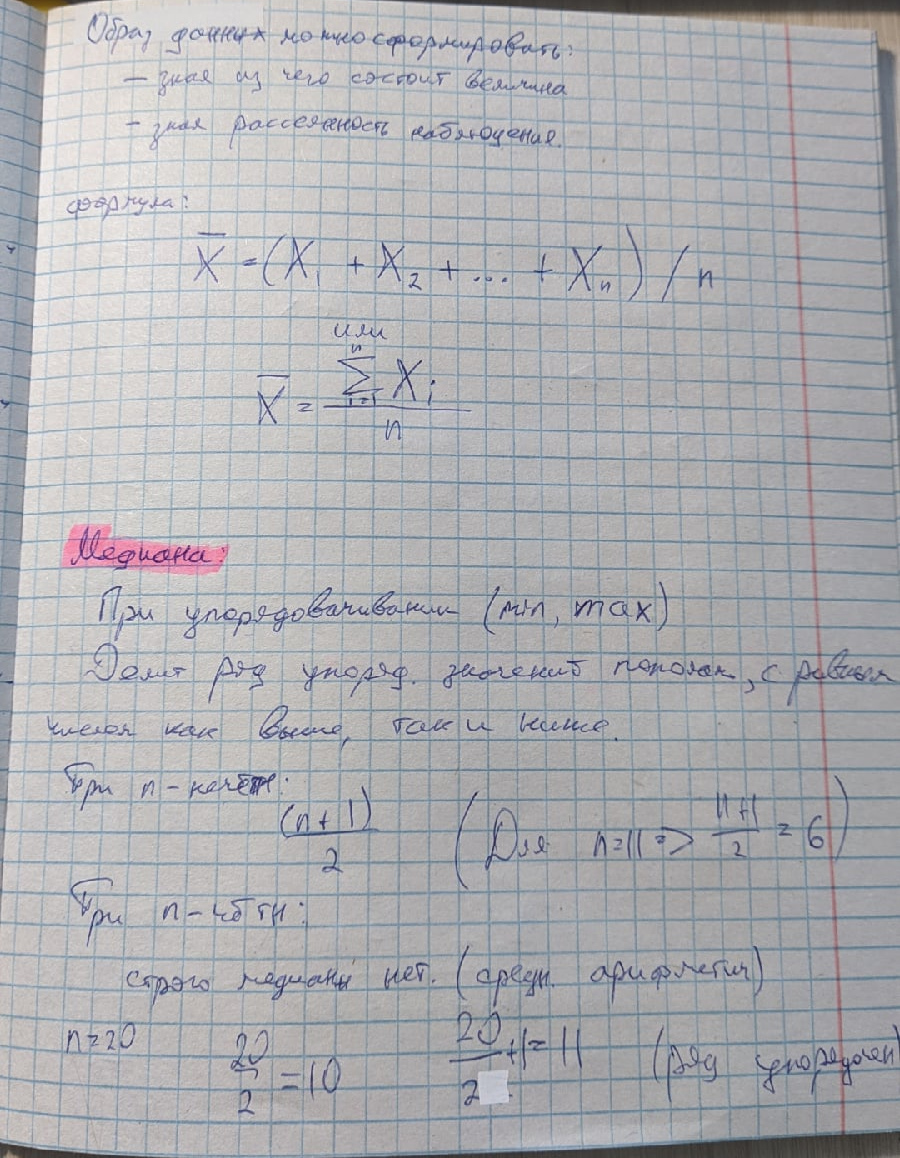 Образ данных можно сформировать:
- зная из чего состоит величина
- зная рассеянность наблюдения.
формула:
X̄ = (X₁ + X₂ + ... + Xₙ) / n
или
X̄ = ∑ⁿᵢ₌₁ Xᵢ / n
Медиана:
При упорядовачивании (min, max)
Делит ряд упоряд. значений пополам, с равным
числом как выше, так и ниже.
При n - нечётн:
(n+1) / 2 (Для n=11 => n+1 / 2 = 6)
При n - чётн:
строго медианы нет. (средн. арифметич)
n=20 20 / 2 = 10 20 / 2 + 1 = 11 (ряд упорядочен)